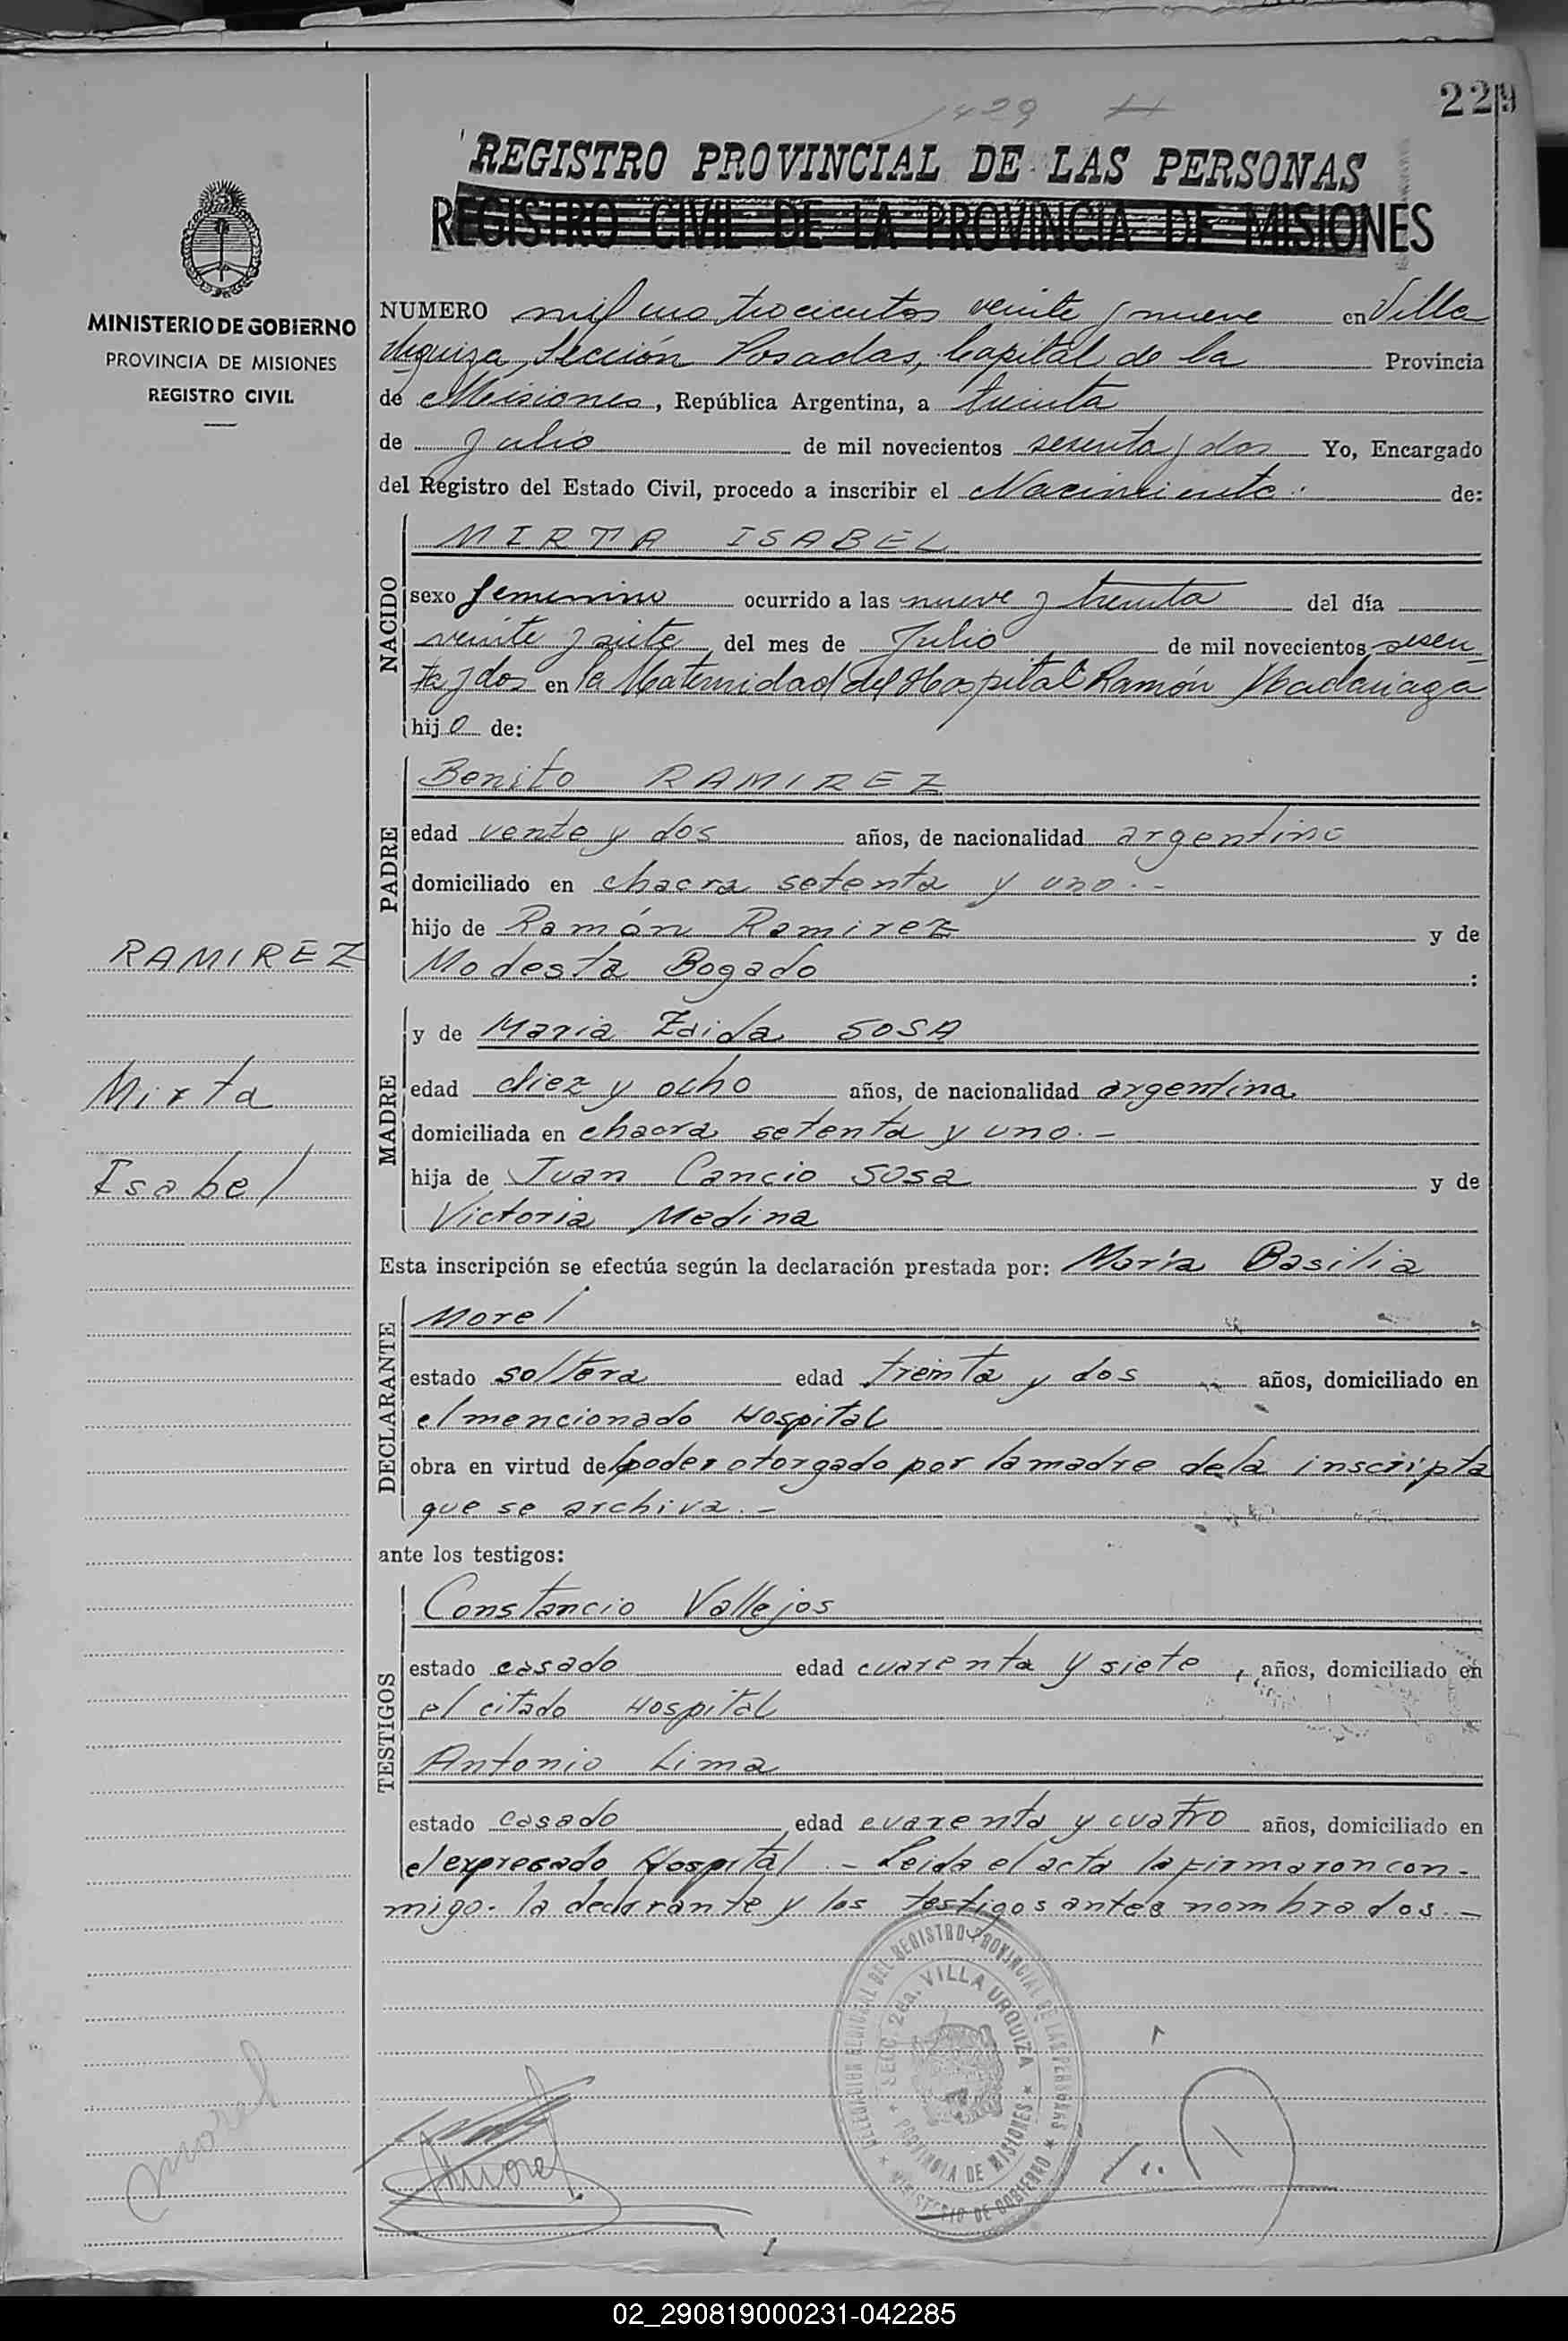 229
1429
REGISTRO PROVINCIAL DE LAS PERSONAS
REGISTRO CIVIL DE LA PROVINCIA DE MISIONES
MINISTERIO DE GOBIERNO
PROVINCIA DE MISIONES
REGISTRO CIVIL
NUMERO mil cuatrocientos veinte y nueve en Villa
Urquiza, Sección Posadas, Capital de la Provincia
de Misiones, República Argentina, a treinta
de Julio de mil novecientos sesenta y dos Yo, Encargado
del Registro del Estado Civil, procedo a inscribir el Nacimiento de:
NACIDO
MIRTA ISABEL
sexo femenino ocurrido a las nueve y treinta del día
veinte y siete del mes de Julio de mil novecientos sesen-
ta y dos en la Maternidad del Hospital Ramón Madariaga
hijo de:
PADRE
Benito RAMIREZ
edad vente y dos años, de nacionalidad argentino
domiciliado en chacra setenta y uno.-
hijo de Ramón Ramirez y de
Modesta Bogado :
RAMIREZ
Mirta
Isabel
MADRE
y de Maria Zaida SOSA
edad diez y ocho años, de nacionalidad argentina
domiciliada en chacra setenta y uno.-
hija de Juan Cancio Sosa y de
Victoria Medina
Esta inscripción se efectúa según la declaración prestada por: María Basilia
DECLARANTE
Morel
estado soltera edad treinta y dos años, domiciliado en
el mencionado Hospital
obra en virtud de poder otorgado por la madre de la inscripta
que se archiva.-
ante los testigos:
TESTIGOS
Constancio Vallejos
estado casado edad cuarenta y siete, años, domiciliado en
el citado Hospital
Antonio Lima
estado casado edad cuarenta y cuatro años, domiciliado en
el expresado Hospital.- Leida el acta la firmaron con-
migo. la declarante y los testigos antes nombrados.-
DEL REGISTRO PROVINCIAL DE LAS PERSONAS
SECC. 2da. VILLA URQUIZA
PROVINCIA DE MISIONES
MINISTERIO DE GOBIERNO
Morel
Morel
02_290819000231-042285